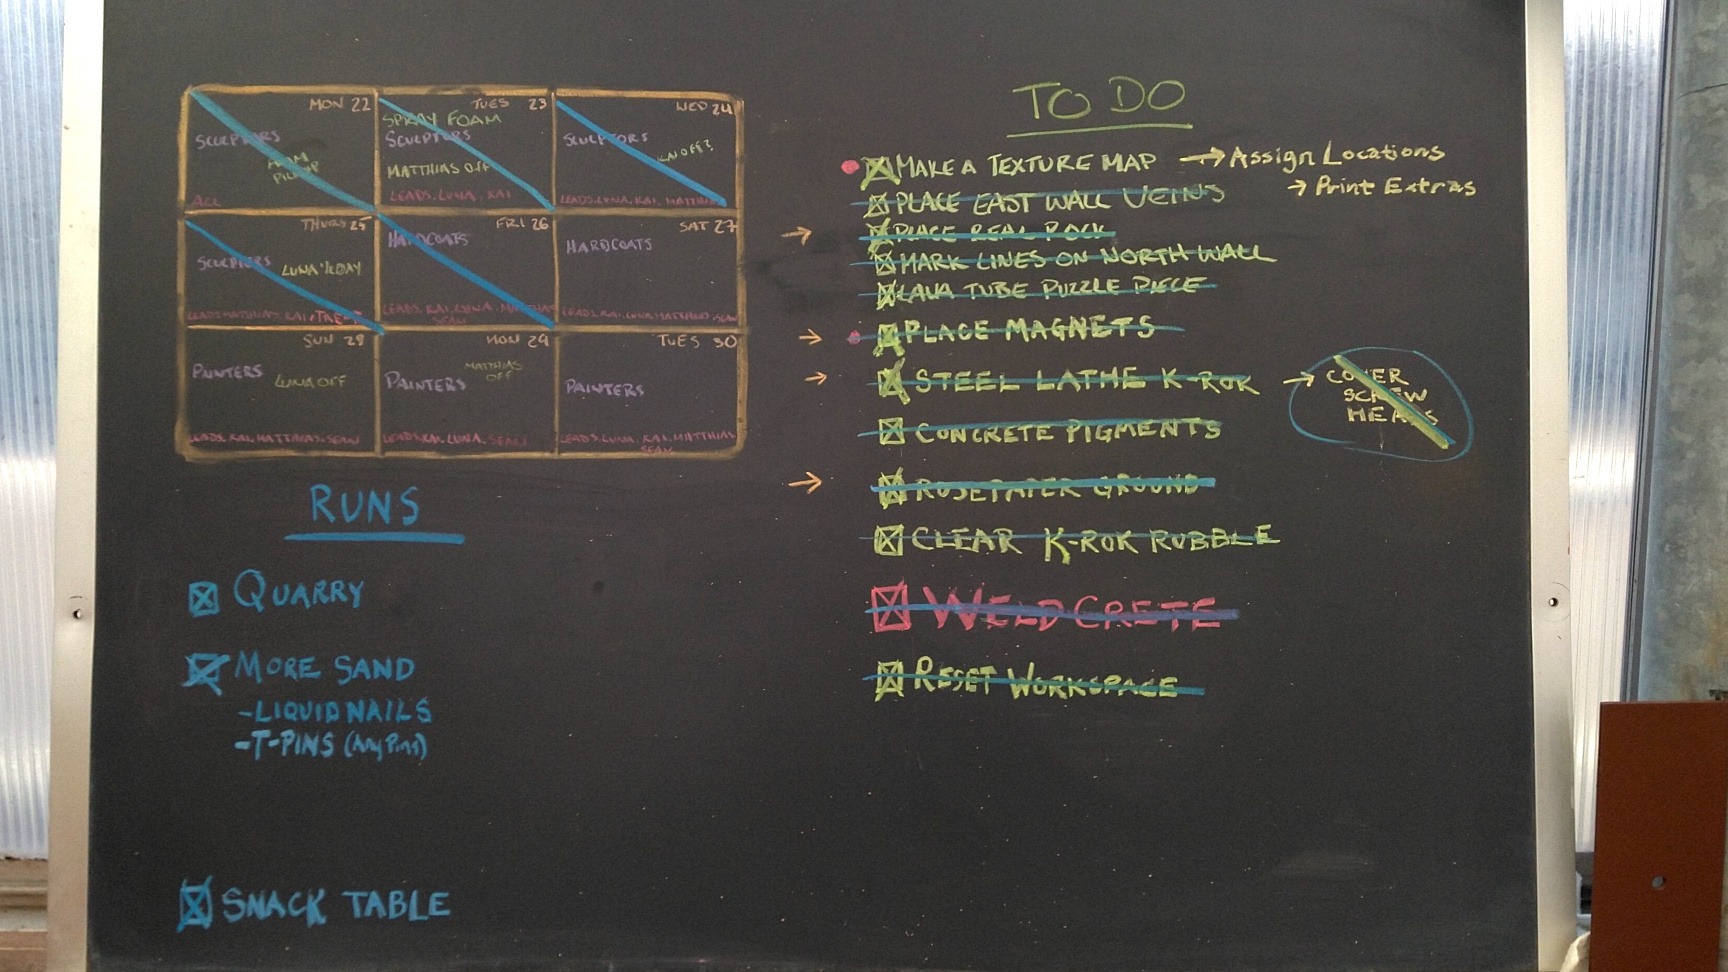 MON 22
SCULPTORS
FOAM
PICKUP
ALL
TUES 23
SPRAY FOAM
SCULPTORS
MATTHIAS OFF
LEADS, LUNA, KAI
WED 24
SCULPTORS
KAI OFF?
LEADS, LUNA, KAI, MATTHIAS
THURS 25
SCULPTERS
LUNA ½ DAY
LEADS, MATTHIAS, KAI,
FRI 26
HARDCOATS
LEADS, KAI, LUNA, MATTHIAS
SEAN
SAT 27
HARDCOATS
LEADS, KAI, LUNA, MATTHIAS, SEAN
SUN 28
PAINTERS
LUNA OFF
LEADS, KAI, MATTHIAS, SEAN
MON 29
MATTHIAS
OFF
PAINTERS
LEADS, KAI, LUNA, SEAN
TUES 30
PAINTERS
LEADS, LUNA, KAI, MATTHIAS
SEAN
RUNS
QUARRY
MORE SAND
-LIQUID NAILS
-T-PINS (Any Pins)
SNACK TABLE
TO DO
MAKE A TEXTURE MAP → Assign Locations
→ Print Extras
PLACE EAST WALL VEINS
→ PLACE REAL ROCK
MARK LINES ON NORTH WALL
LAVA TUBE PUZZLE PIECE
→ PLACE MAGNETS
→ STEEL LATHE K-ROK → COVER
SCREW
HEADS
CONCRETE PIGMENTS
→ ROSEPAPER GROUND
CLEAR K-ROK RUBBLE
WELDCRETE
RESET WORKSPACE